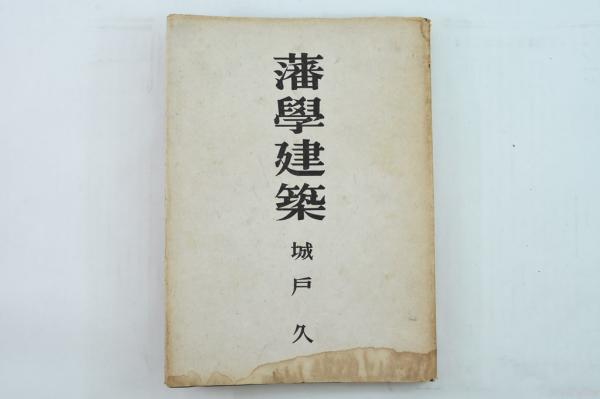 藩學建築
城戸久